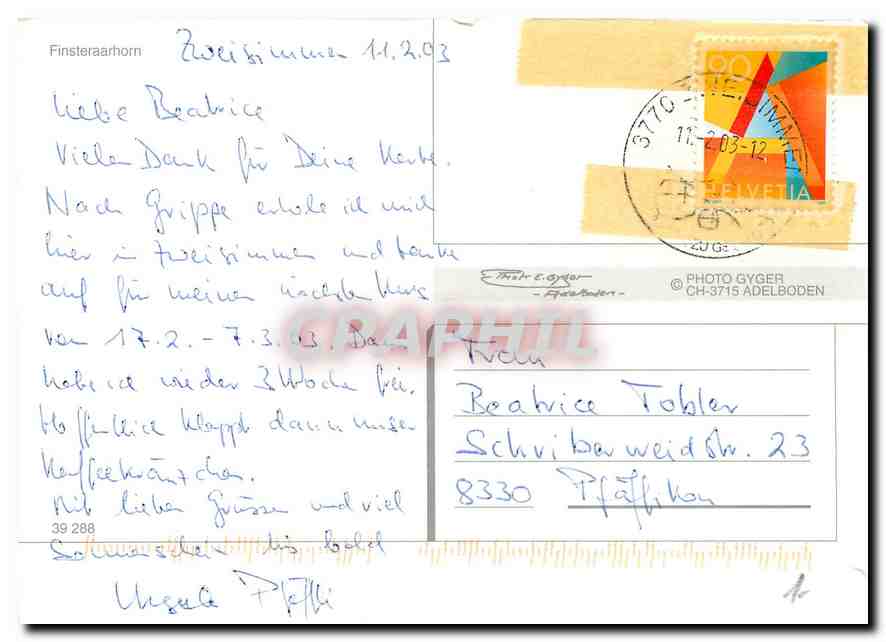 Finsteraarhorn
Zweisimmen 11.2.03
Liebe Beatrice
Vielen Dank für Deine Karte.
Nach Grippe erhole ich mich
hier in Zweisimmen und tanke
auf für meinen nächsten Kurs
von 17.2. – 7.3.03. Dann
habe ich wieder 3 Woche frei.
Hoffentlich klappt dann unser
Kaffeekränzchen.
Mit lieben Grüssen und viel
Sonnenschein bis bald
Ursula
39 288
90
HELVETIA
3770
11.-2.03-12
Photo E. Gyger
- Adelboden -
© PHOTO GYGER
CH-3715 ADELBODEN
CPAPHIL
Frau
Beatrice Tobler
Schriberweidstr. 23
8330 Pfäffikon
1.-